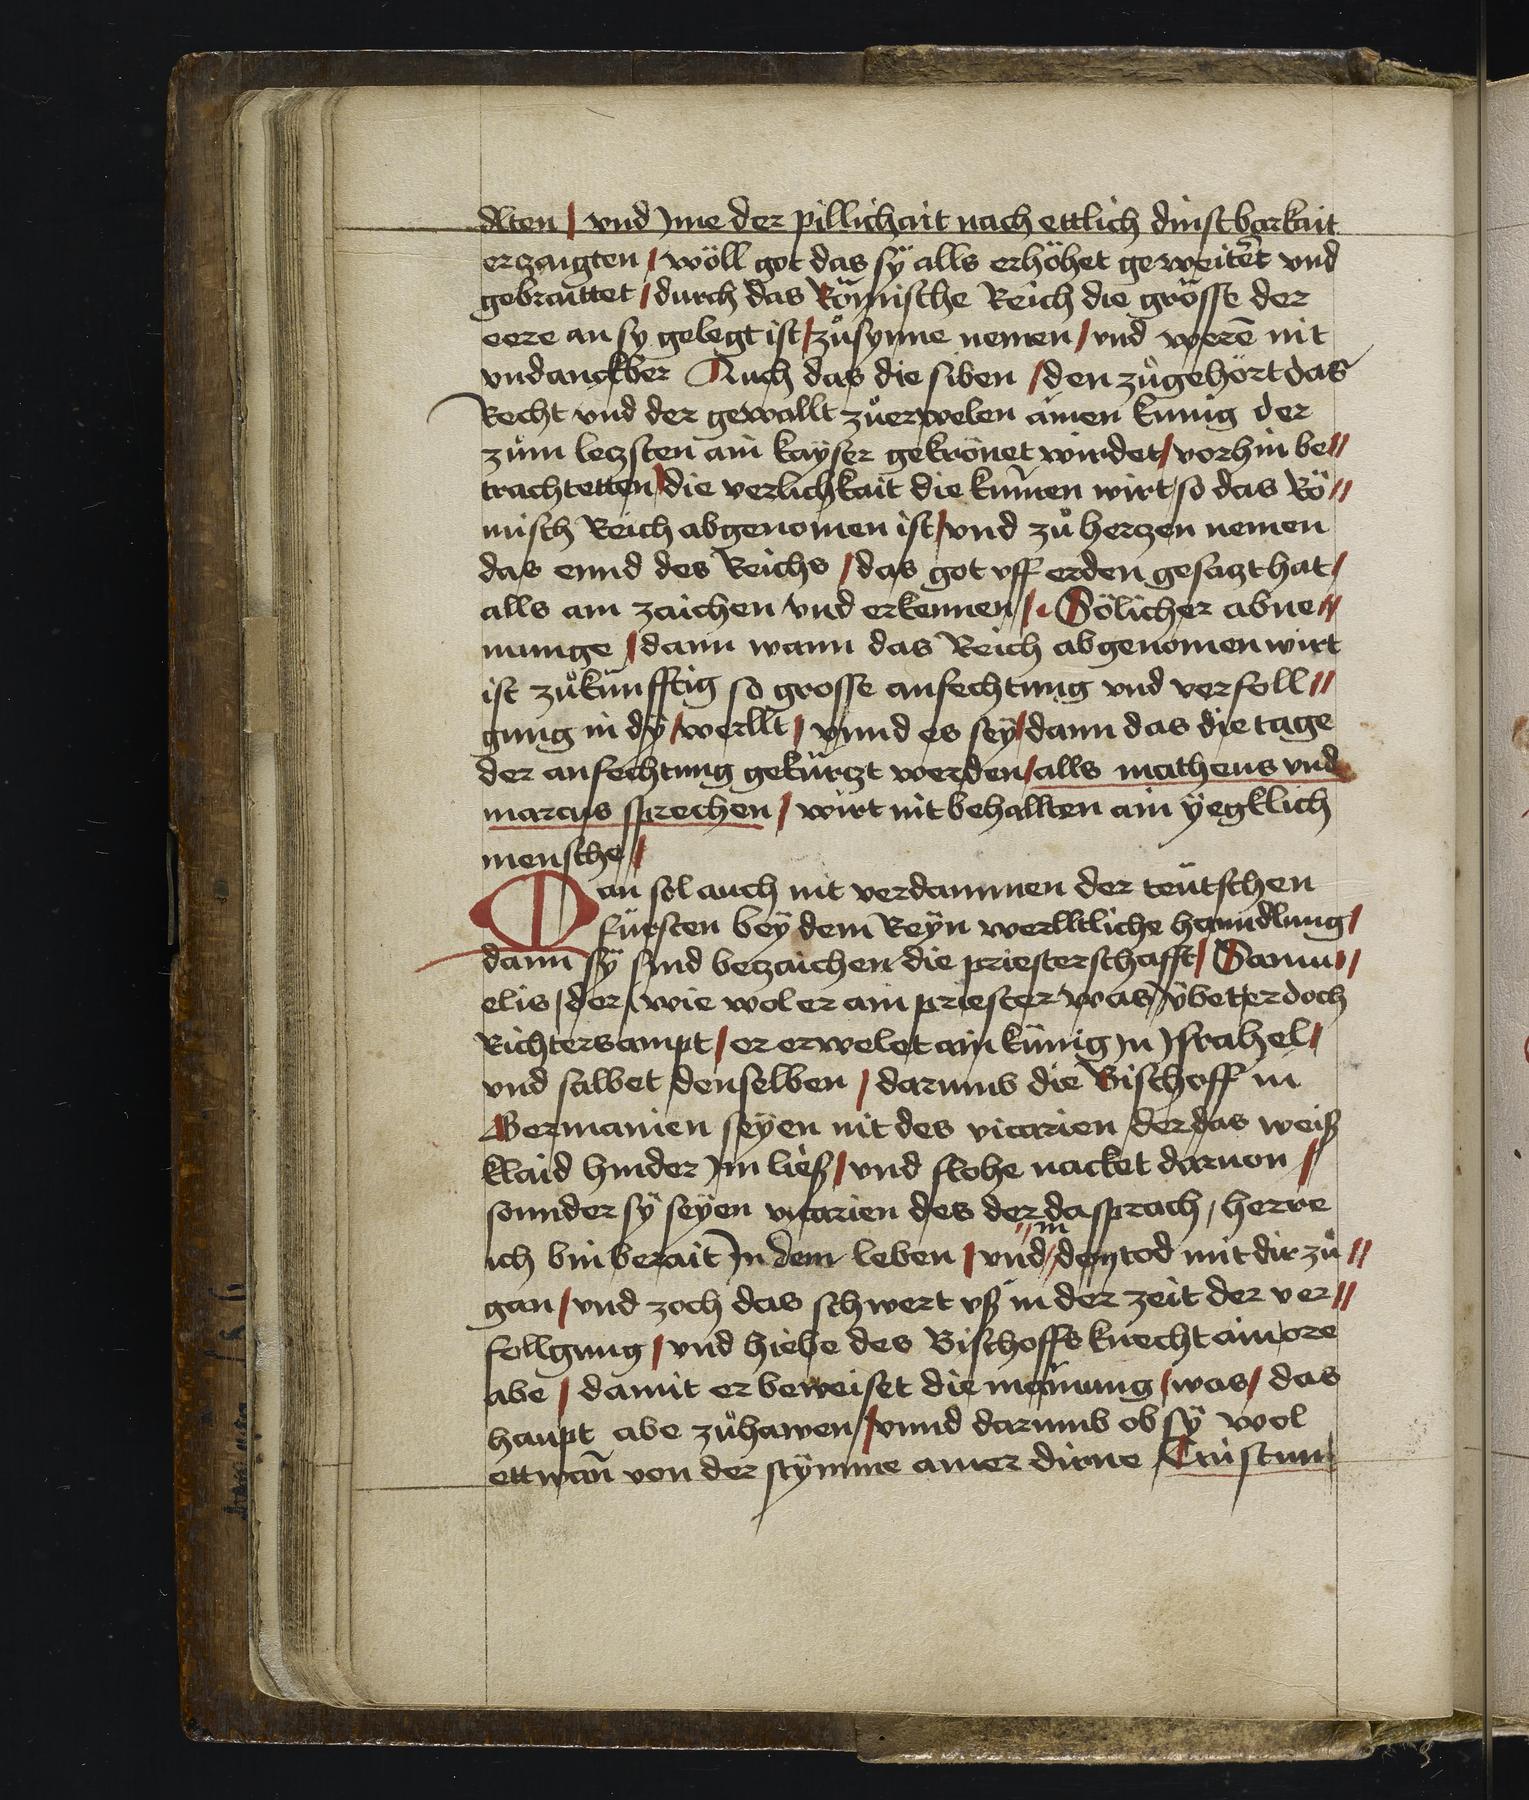 alten / vnd jme der pillichait nach ettlich dinstbarkait
erzaigten / wöll got das sÿ alls erhöhet geweitert vnd
gebraittet / durch das Römische Reich die grösse der
eere an sy gelegt ist / zůsynne nemen / vnd werē nit
vndanckber Auch das die siben / den zůgehört das
Recht vnd der gewallt zůerwelen ainen kunig der
zům letzsten ain kaÿser gekrönet wirdet / vorhin be//
trachtetten / die verlichkait die kum̄en wirt / so das Rö//
misch Reich abgenomen ist / vnd zů hertzen nemen
das ennd des Reichs / das got vff erden gesatzt hat /
alls ain zaichen vnd erkennen / Sölicher abne//
munge / dann wann das Reich abgenomen wirt
ist zůkünfftig so grosse anfechtung vnd verfoll//
gung in dÿ / werllt / vnnd es seÿ / dann das die tage
der anfechtung gekürtzt werden / alls matheus vnd
marcus sprechen / wirt nit behallten ain ÿegklich
mensche //
Man sol auch nit verdammen der teütschen
fürsten beÿ dem Reÿn werlltliche hanndlung /
dann sÿ sind bezaichen die priesterschafft / Samu//
elis / der / wie wol er ain priester was / ÿbet er doch
Richtersampt / er erwelet ain künig jn jsrahel /
vnd salbet denselben / darumb die Bischoff in
Germanien seÿen nit des vicarien der das weiß
klaid hinder jm ließ / vnd flohe nacket daruon /
sonnder sÿ seÿen vicarien des der da sprach / herre
ich bin berait jn dem leben / vnd // in den tod mit dir zů //
gan / vnd zoch das schwert vß in der zeit der ver//
follgung / vnd hiebe des Bischoffs knecht ain ore
abe / damit er beweiset die mainung / was / das
haupt abe zůhawen / vnnd darumb ob sÿ wol
ettwan̄ von der stÿmme ainer dirne Cristum